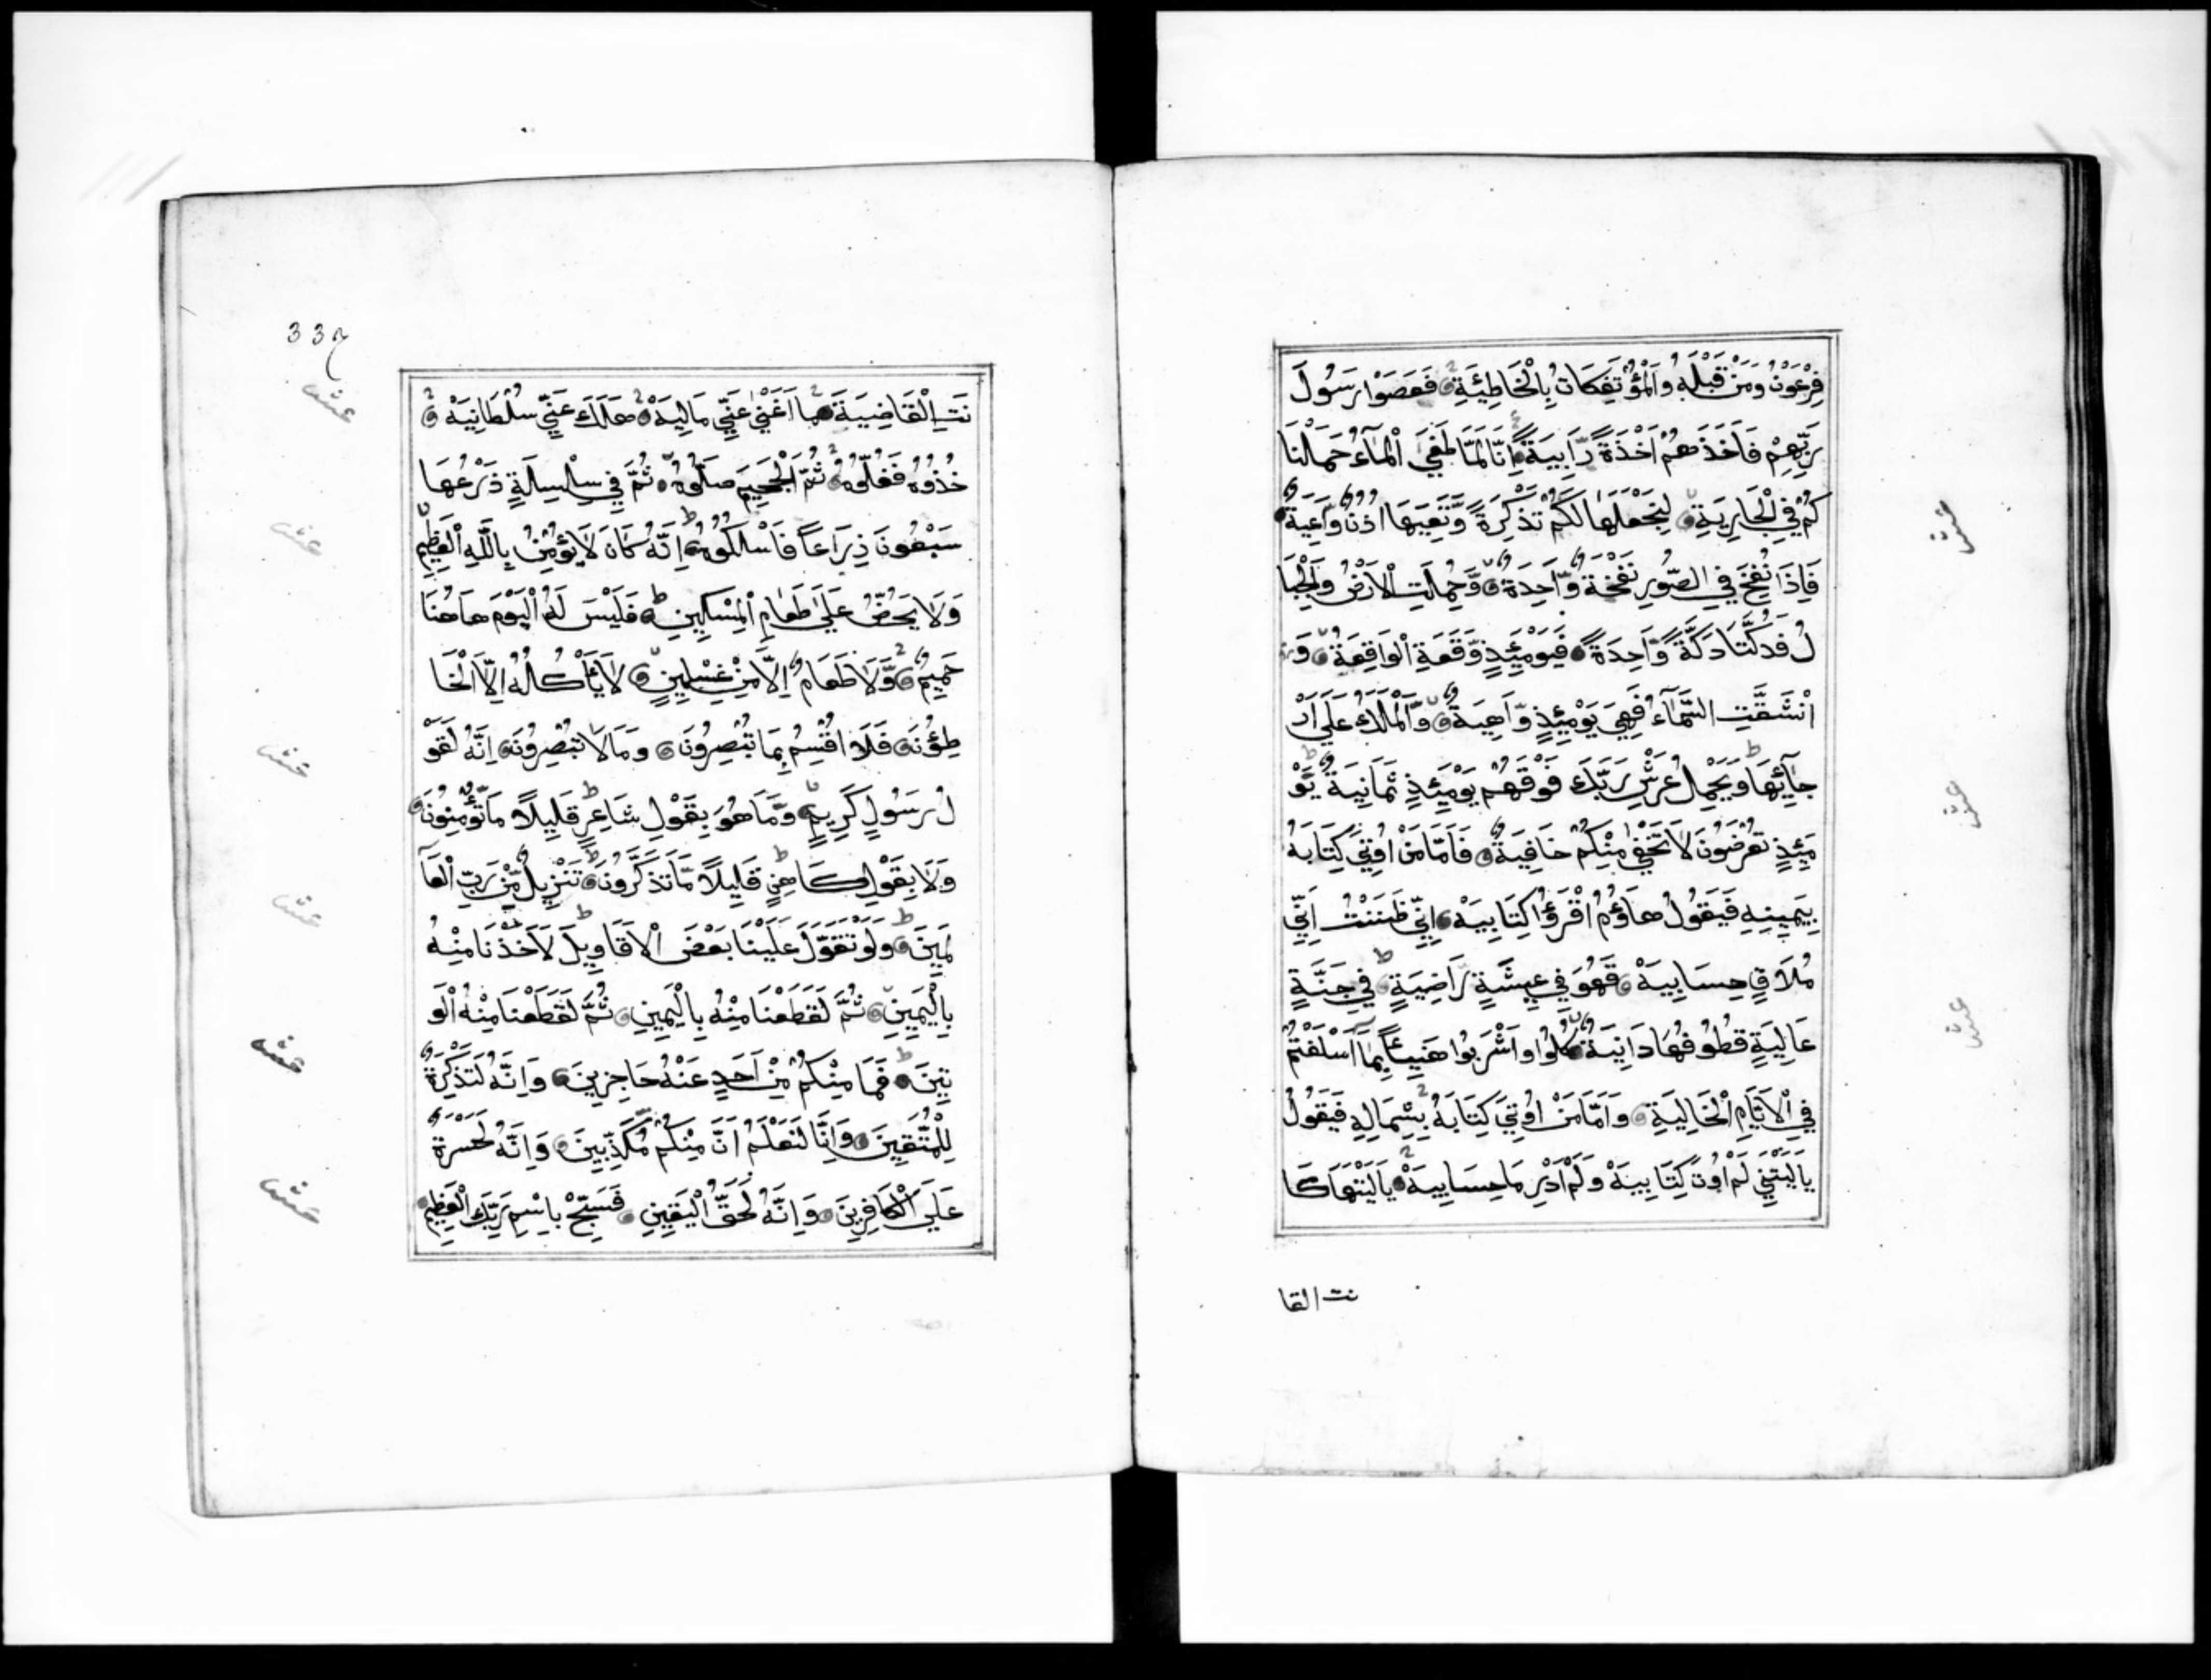 فِرْعَوْنُ وَمَنْ قَبْلَهُ وَالْمُؤْتَفِكَاتُ بِالْخَاطِئَةِ فَعَصَوْا رَسُولَ
رَبِّهِمْ فَاَخَذَهُمْ اَخْذَةً رَّابِيَةً اِنَّا لَمَّا طَغَى الْمَآءُ حَمَلْنَا
كُمْ فِي الْجَارِيَةِ لِنَجْعَلَهَا لَكُمْ تَذْكِرَةً وَّتَعِيَهَا اُذُنٌ وَّاعِيَةٌ
فَاِذَا نُفِخَ فِي الصُّورِ نَفْخَةٌ وَّاحِدَةٌ وَّحُمِلَتِ الْاَرْضُ وَالْجِبَا
لُ فَدُكَّتَا دَكَّةً وَّاحِدَةً فَيَوْمَئِذٍ وَّقَعَةِ الْوَاقِعَةُ وَ
انْشَقَّتِ السَّمَآءُ فَهِيَ يَوْمَئِذٍ وَّاهِيَةٌ وَّالْمَلَكُ عَلٰى اَرْ
جَآئِهَا وَيَحْمِلُ عَرْشَ رَبِّكَ فَوْقَهُمْ يَوْمَئِذٍ ثَمَانِيَةٌ يَوْ
مَئِذٍ تُعْرَضُونَ لَا تَخْفٰى مِنْكُمْ خَافِيَةٌ فَاَمَّا مَنْ اُوْتِيَ كِتَابَهُ
بِيَمِينِهِ فَيَقُولُ هَاؤُمُ اقْرَؤُا كِتَابِيَهْ اِنِّي ظَنَنْتُ اَنِّي
مُلَاقٍ حِسَابِيَهْ فَهُوَ فِي عِيشَةٍ رَّاضِيَةٍ فِي جَنَّةٍ
عَالِيَةٍ قُطُوفُهَا دَانِيَةٌ كُلُوا وَاشْرَبُوا هَنِيئًا بِمَا اَسْلَفْتُمْ
فِي الْاَيَّامِ الْخَالِيَةِ وَاَمَّا مَنْ اُوْتِيَ كِتَابَهُ بِشِمَالِهِ فَيَقُولُ
يَالَيْتَنِي لَمْ اُوْتَ كِتَابِيَهْ وَلَمْ اَدْرِ مَا حِسَابِيَهْ يَالَيْتَهَا كَا
نت القا
33
نَتِ الْقَاضِيَةَ مَا اَغْنٰى عَنِّي مَالِيَهْ هَلَكَ عَنِّي سُلْطَانِيَهْ
خُذُوْهُ فَغُلُّوْهُ ثُمَّ الْجَحِيمَ صَلُّوْهُ ثُمَّ فِي سِلْسِلَةٍ ذَرْعُهَا
سَبْعُونَ ذِرَاعًا فَاسْلُكُوْهُ اِنَّهُ كَانَ لَا يُؤْمِنُ بِاللّٰهِ الْعَظِيمِ
وَلَا يَحُضُّ عَلٰى طَعَامِ الْمِسْكِينِ فَلَيْسَ لَهُ الْيَوْمَ هَاهُنَا
حَمِيمٌ وَّلَا طَعَامٌ اِلَّا مِنْ غِسْلِينٍ لَا يَاْكُلُهُ اِلَّا الْخَا
طِؤُنَ فَلَا اُقْسِمُ بِمَا تُبْصِرُونَ وَمَا لَا تُبْصِرُونَ اِنَّهُ لَقَوْ
لُ رَسُولٍ كَرِيمٍ وَّمَا هُوَ بِقَوْلِ شَاعِرٍ قَلِيلًا مَا تُؤْمِنُونَ
وَلَا بِقَوْلِ كَاهِنٍ قَلِيلًا مَّا تَذَكَّرُونَ تَنْزِيلٌ مِّنْ رَبِّ الْعَا
لَمِينَ وَلَوْ تَقَوَّلَ عَلَيْنَا بَعْضَ الْاَقَاوِيلَ لَاَخَذْنَا مِنْهُ
بِالْيَمِينِ ثُمَّ لَقَطَعْنَا مِنْهُ بِالْيَمِينِ ثُمَّ لَقَطَعْنَا مِنْهُ الْوَ
تِينَ فَمَا مِنْكُمْ مِنْ اَحَدٍ عَنْهُ حَاجِزِينَ وَاِنَّهُ لَتَذْكِرَةٌ
لِلْمُتَّقِينَ وَاِنَّا لَنَعْلَمُ اَنَّ مِنْكُمْ مُكَذِّبِينَ وَاِنَّهُ لَحَسْرَةٌ
عَلَى الْكَافِرِينَ وَاِنَّهُ لَحَقُّ الْيَقِينِ فَسَبِّحْ بِاسْمِ رَبِّكَ الْعَظِيمِ